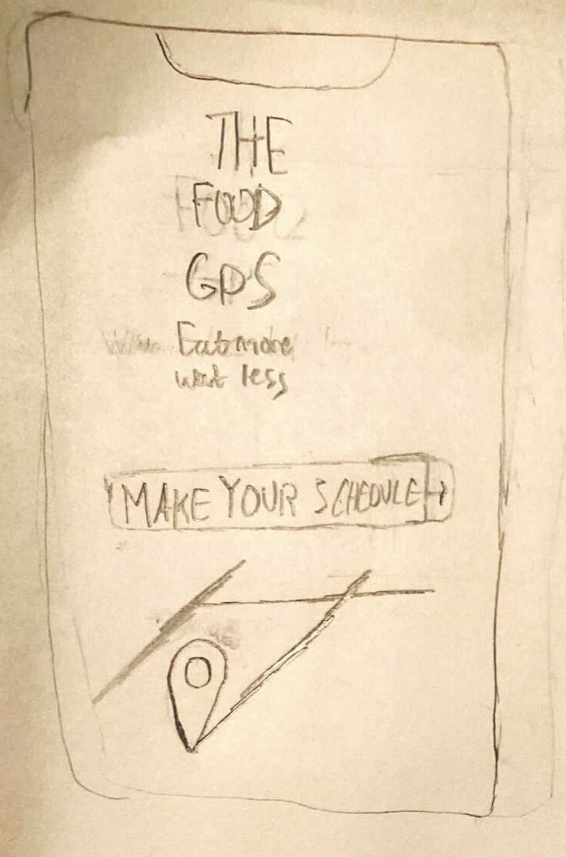 THE
FOOD
GPS
Eat more
wait less
MAKE YOUR SCHEDULE →